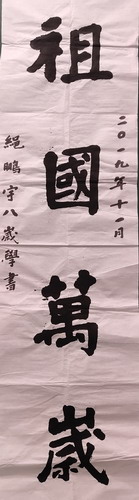 二〇一九年十一月
祖國萬歲
繩鵬宇八歲學書